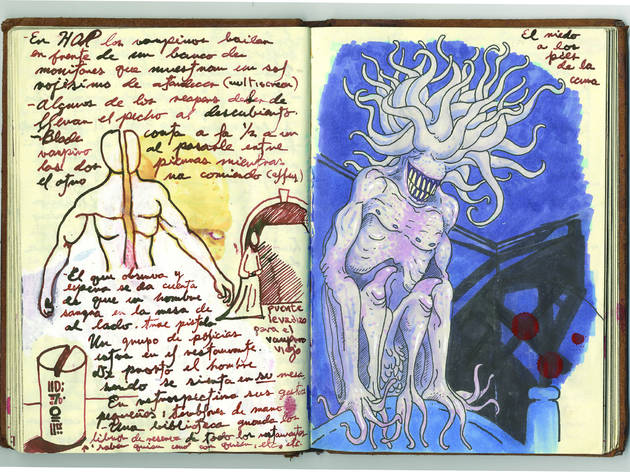 -En HOP los vampiros bailan
en frente de un banco de
monitores que muestran un sol
(multiscreen)
-Algunos de los reapers deben de
llevan el pecho al descubierto
-Blade corta a la 1/2 a un
vampiro al pasarle entre
las dos piernas mientras
el otro va comiendo (effex)
-El que observa y
espera se da cuenta
de que un hombre
sangra en la mesa de
al lado. trae pistola
Un grupo de policías
estan en el restaurante
De pronto el hombre
se sienta en su mesa
En retrospectiva sus gestos
pequeños: temblores de mano
-Una biblioteca guarda los
libros de reserva de todos los restaurantes
con quien, etc. etc.
puente
levadizo
para el
vampiro
viejo
El miedo
a los
pies
de la
cama